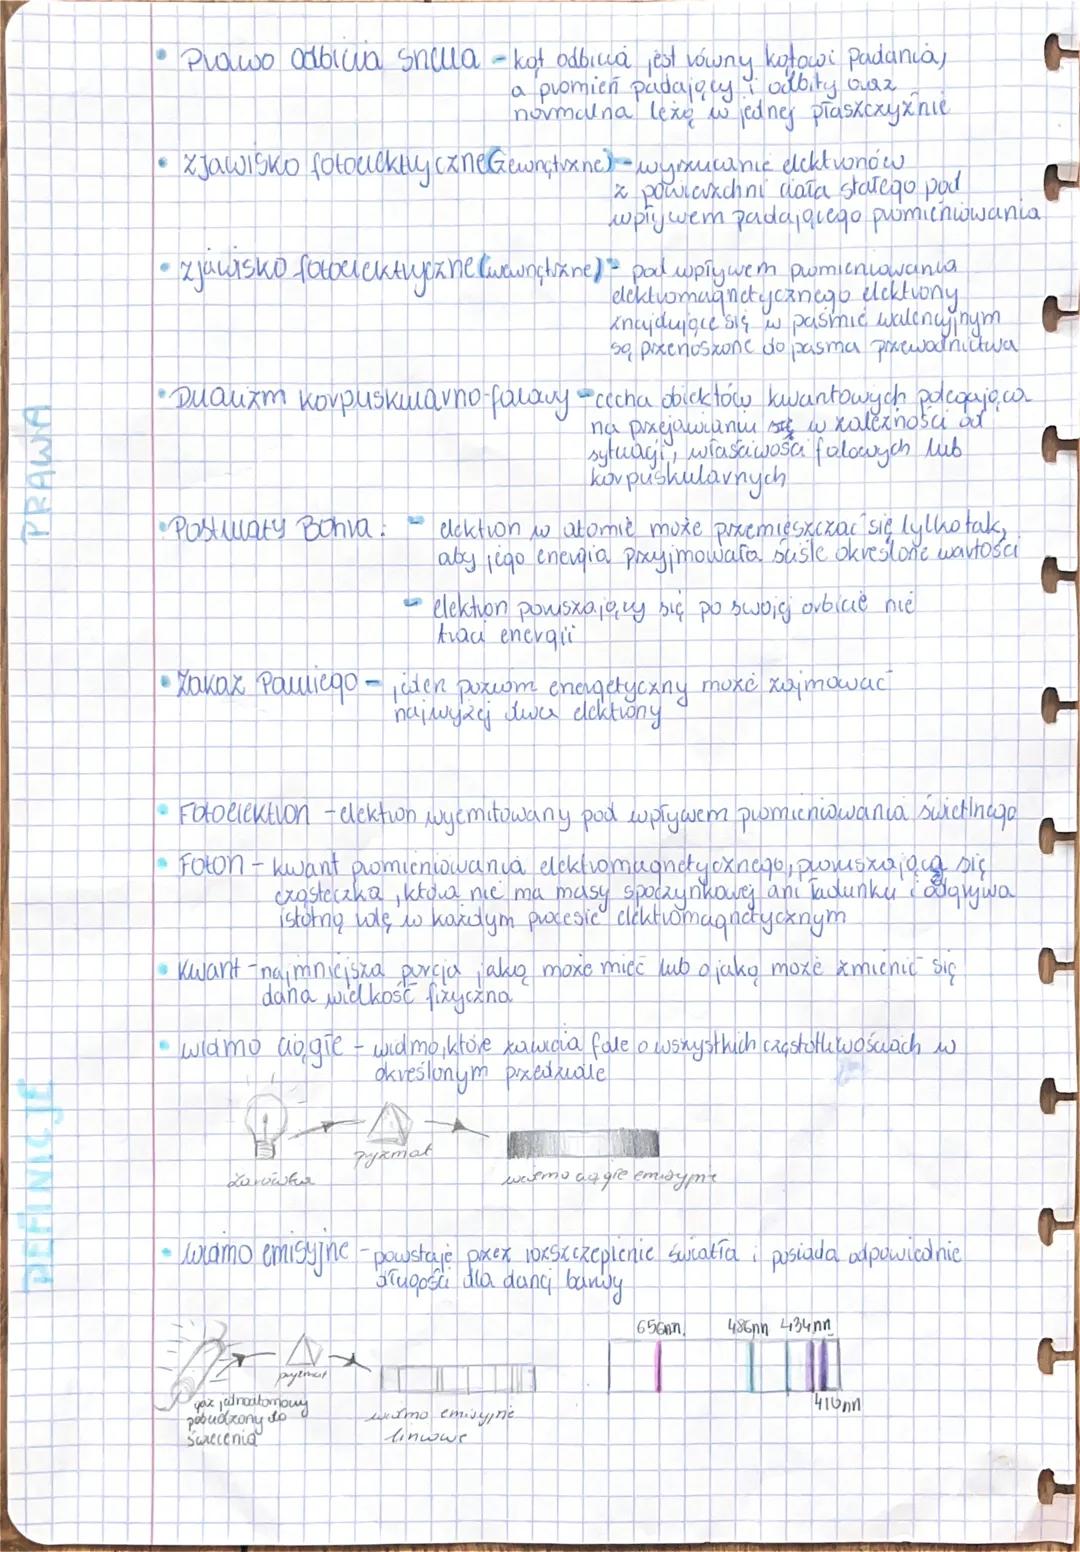 PRAWA
• Prawo odbicia Snella - kąt odbicia jest równy kątowi padania,
a promień padający i odbity oraz
normalna leżą w jednej płaszczyźnie
• zjawisko fotoelektryczne (zewnętrzne) - wyrzucanie elektronów
z powierzchni ciała stałego pod
wpływem padającego promieniowania
• zjawisko fotoelektryczne (wewnętrzne) - pod wpływem promieniowania
elektromagnetycznego elektrony
znajdujące się w paśmie walencyjnym
są przenoszone do pasma przewodnictwa
• Dualizm korpuskularno-falowy - cecha obiektów kwantowych polegająca
na przejawianiu się w zależności od
sytuacji, właściwości falowych lub
korpuskularnych
• Postulaty Bohra: - elektron w atomie może przemieszczać się tylko tak,
aby jego energia przyjmowała ściśle określone wartości
- elektron poruszający się po swojej orbicie nie
traci energii
• Zakaz Pauliego - jeden poziom energetyczny może zajmować
najwyżej dwa elektrony
DEFINICJE
• Fotoelektron - elektron wyemitowany pod wpływem promieniowania świetlnego
• Foton - kwant promieniowania elektromagnetycznego, poruszającą się
cząsteczka, która nie ma masy spoczynkowej ani ładunku i odgrywa
istotną rolę w każdym procesie elektromagnetycznym
• Kwant - najmniejsza porcja jaką może mieć lub o jaką może zmienić się
dana wielkość fizyczna
• widmo ciągłe - widmo, które zawiera fale o wszystkich częstotliwościach w
określonym przedziale
żarówka
pryzmat
widmo ciągłe emisyjne
• widmo emisyjne - powstaje przez rozszczepienie światła i posiada odpowiednie
długości dla danej barwy
656nm
486nm
434nm
410nm
pryzmat
gaz jednoatomowy
pobudzony do
świecenia
widmo emisyjne
liniowe